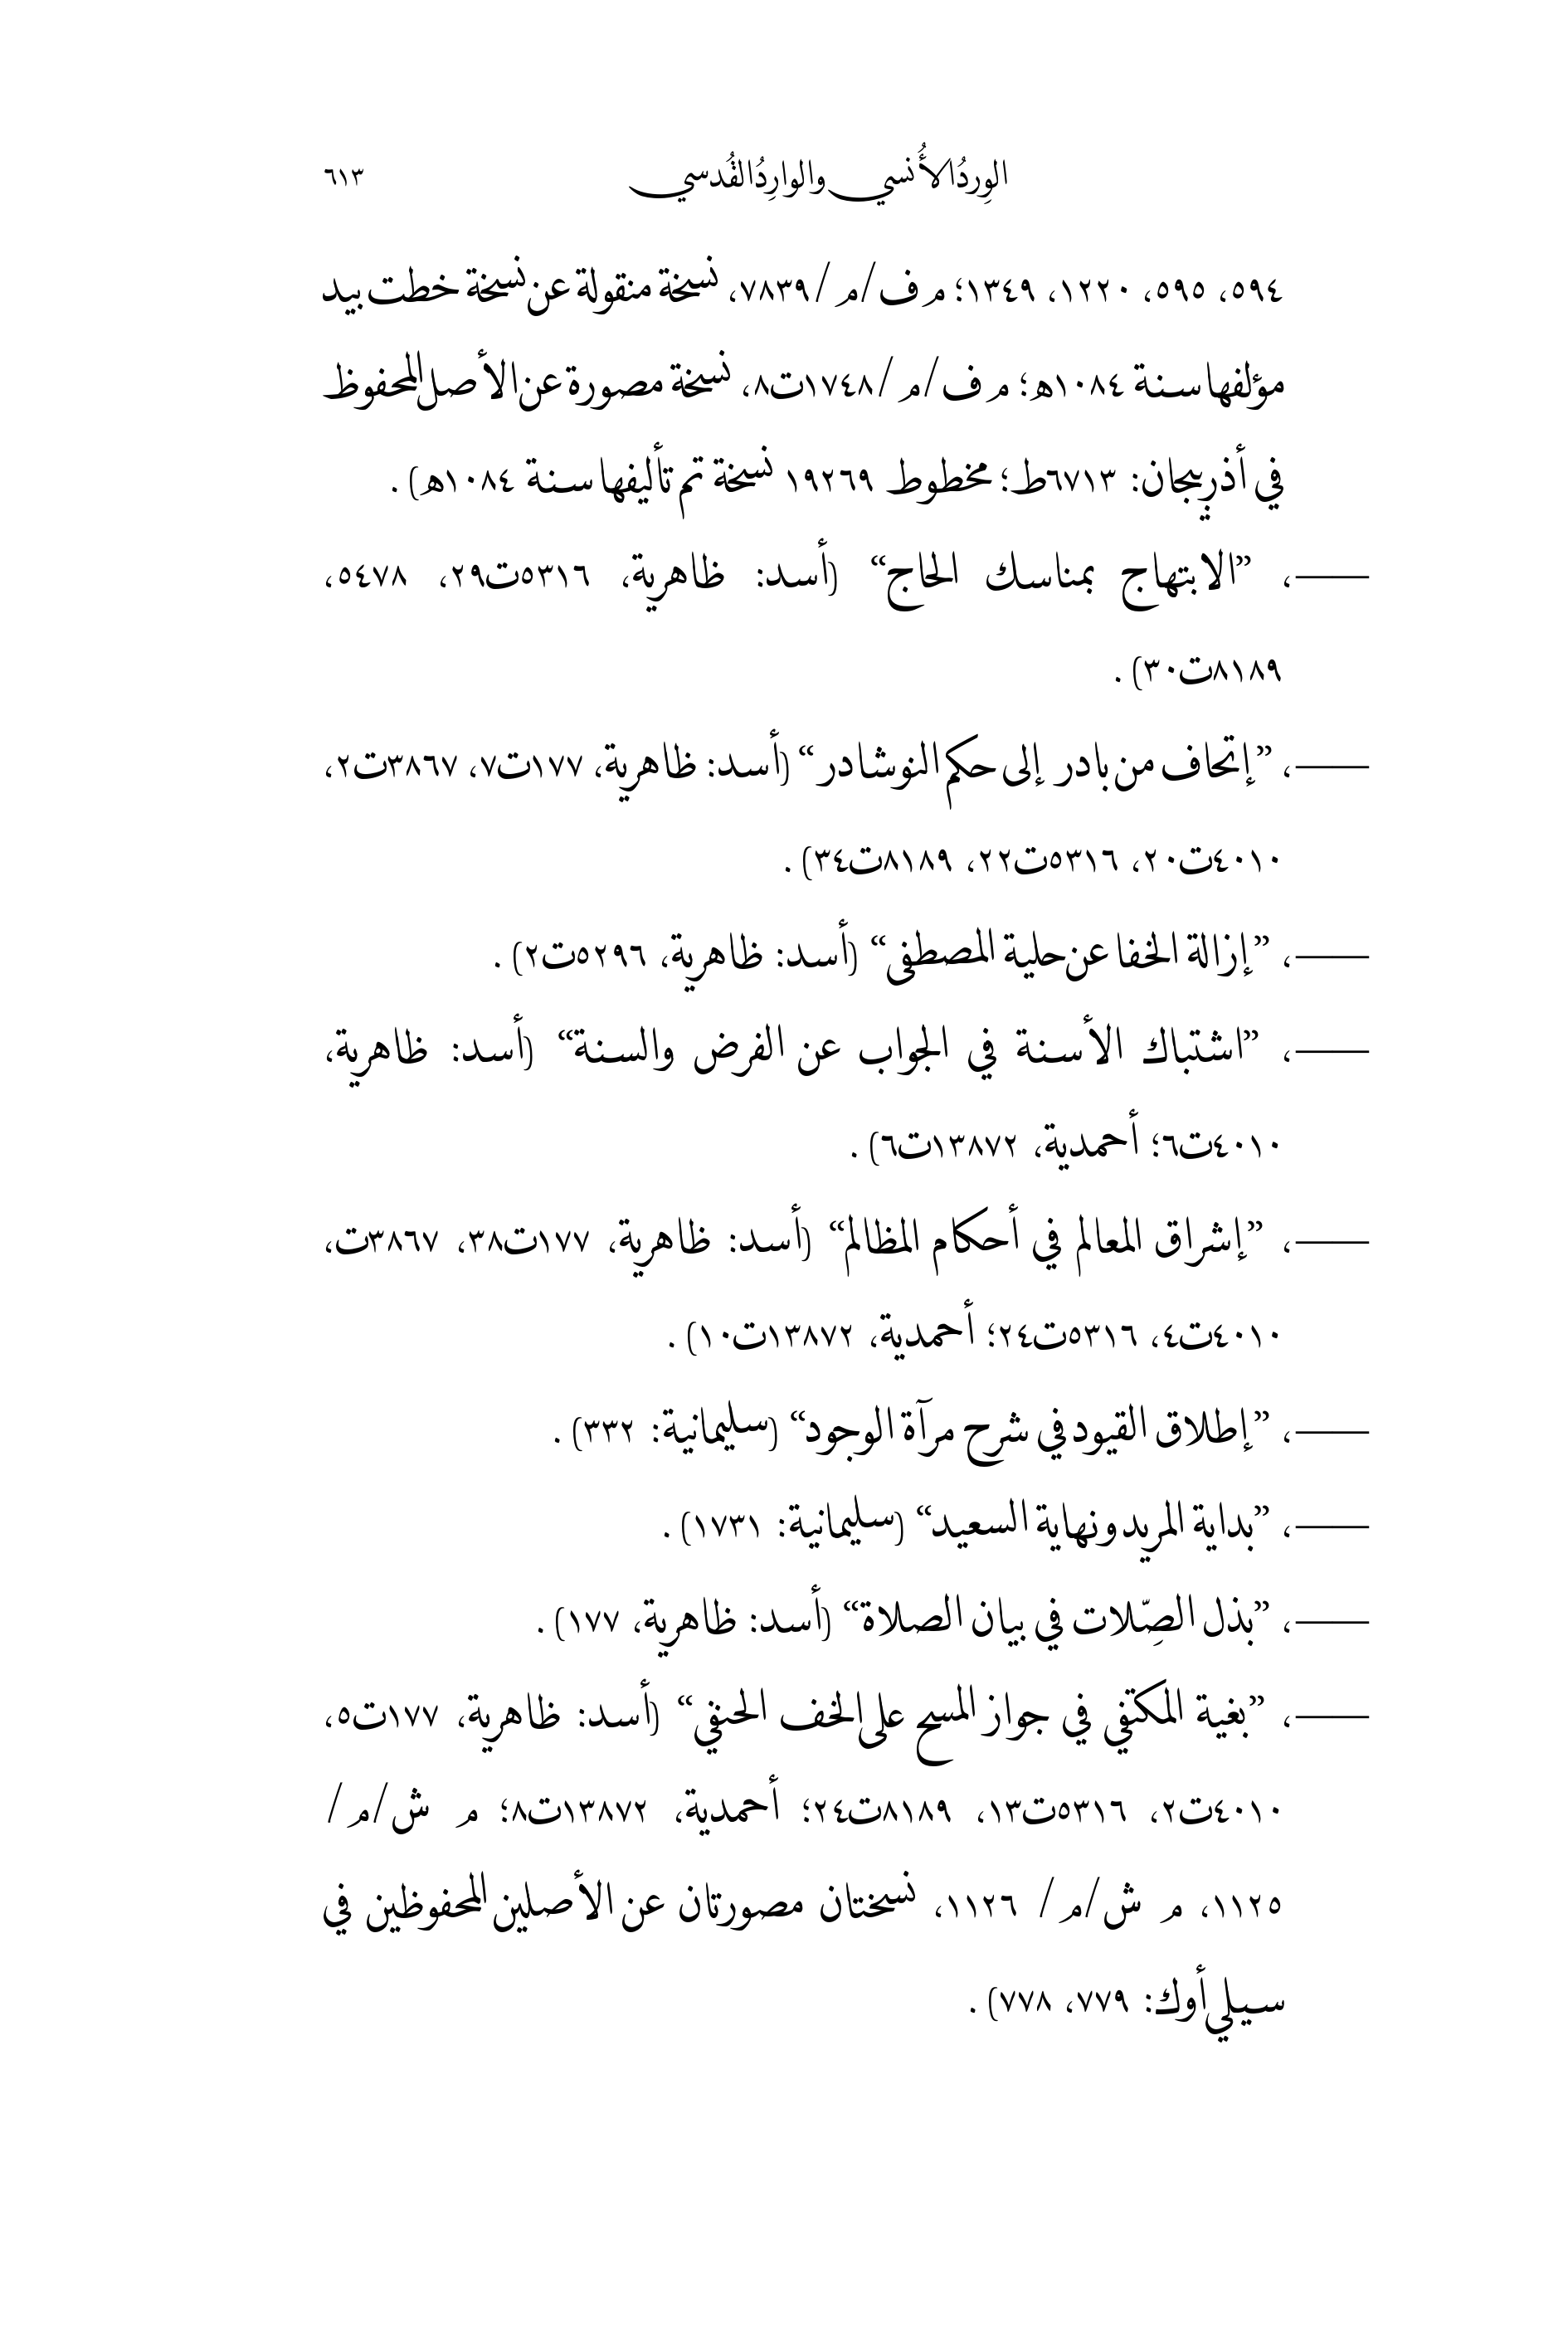 الوِردُ الأُنسي والوارِدُ القُدسي ٦١٣
٥٩٤، ٥٩٥، ١٢٢٠، ١٣٤٩؛ م ف/م/٧٨٣٩، نسخة منقولة عن نسخة خطت بيد
مؤلفها سنة ١٠٨٤هـ؛ م ف/م/١٧٤٨ت٨، نسخة مصورة عن الأصل المحفوظ
في أذربيجان: ٦٧١٣ط؛ مخطوط ١٩٢٦٩ نسخة تم تأليفها سنة ١٠٨٤هـ).
———، ”الابتهاج بمناسك الحاج“ (أسد: ظاهرية، ٥٣١٦ت٢٩، ٥٤٧٨،
٨١٨٩ت٣٠).
———، ”إتحاف من بادر إلى حكم النوشادر“ (أسد: ظاهرية، ١٧٧ت٧، ٣٨٦٧ت٢،
٤٠١٠ت٢٠، ٥٣١٦ت٢٢، ٨١٨٩ت٣٤).
———، ”إزالة الخفا عن حلية المصطفى“ (أسد: ظاهرية، ٥٢٩٦ت٢).
———، ”اشتباك الأسنة في الجواب عن الفرض والسنة“ (أسد: ظاهرية،
٤٠١٠ت٦؛ أحمدية، ١٣٨٧٢ت٦).
———، ”إشراق المعالم في أحكام المظالم“ (أسد: ظاهرية، ١٧٧ت٣٨، ٣٨٦٧ت،
٤٠١٠ت٤، ٥٣١٦ت٢٤؛ أحمدية، ١٣٨٧٢ت١٠).
———، ”إطلاق القيود في شرح مرآة الوجود“ (سليمانية: ٣٣٢).
———، ”بداية المريد ونهاية السعيد“ (سليمانية: ١٧٣١).
———، ”بذل الصِّلات في بيان الصلاة“ (أسد: ظاهرية، ١٧٧).
———، ”بغية المكتفي في جواز المسح على الخف الحنفي“ (أسد: ظاهرية، ١٧٧ت٥،
٤٠١٠ت٢، ٥٣١٦ت١٣، ٨١٨٩ت٢٤؛ أحمدية، ١٣٨٧٢ت٨؛ م ش/م/
١١٢٥، م ش/م/ ١١٢٦، نسختان مصورتان عن الأصلين المحفوظين في
سيلي أوك: ٧٧٩، ٧٧٨).